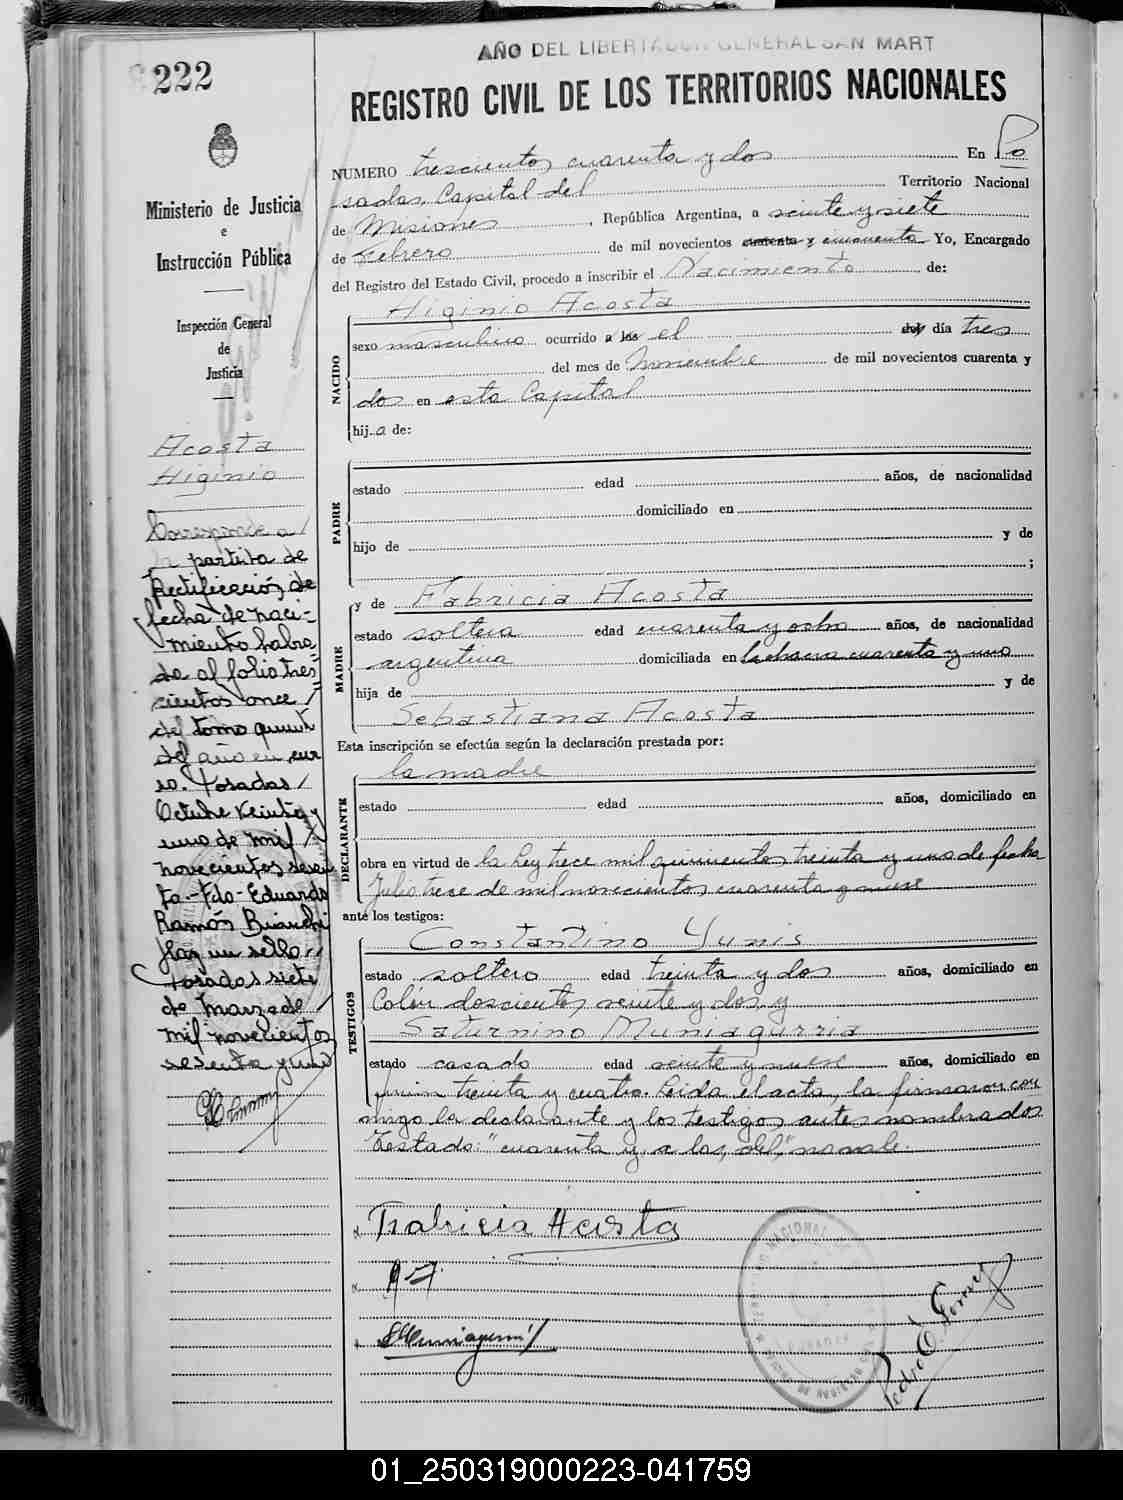 AÑO DEL LIBERTADOR GENERAL SAN MART
222
REGISTRO CIVIL DE LOS TERRITORIOS NACIONALES
Ministerio de Justicia
e
Instrucción Pública
Inspección General
de
Justicia
Acosta
Higinio
Corresponde a
la partida de
Rectificación de
fecha de naci-
miento labra-
da al folio tres-
cientos once
del tomo quint
del año en cur
so. Posadas
Octubre veinte y
uno de mil
novecientos sesen
ta.- Fdo. Eduardo
Ramón Bianchi
Hay un sello
Posadas siete
de marzo de
mil novecientos
sesenta y uno
NUMERO trescientos cuarenta y dos En Po
sadas, Capital del Territorio Nacional
de Misiones, República Argentina, a veinte y siete
de Febrero de mil novecientos cuarenta y cincuenta Yo, Encargado
del Registro del Estado Civil, procedo a inscribir el Nacimiento de:
NACIDO
Higinio Acosta
sexo masculino ocurrido a las el del día tres
del mes de Noviembre de mil novecientos cuarenta y
dos en esta Capital
hij.o de:
PADRE
estado edad años, de nacionalidad
domiciliado en
hijo de y de
;
MADRE
y de Fabricia Acosta
estado soltera edad cuarenta y ocho años, de nacionalidad
argentina domiciliada en la chacra cuarenta y uno
hija de y de
Sebastiana Acosta
Esta inscripción se efectúa según la declaración prestada por:
DECLARANTE
la madre
estado edad años, domiciliado en
obra en virtud de la Ley trece mil quinientos treinta y uno de fecha
Julio trece de mil novecientos cuarenta y nueve
ante los testigos:
TESTIGOS
Constantino Yunis
estado soltero edad treinta y dos años, domiciliado en
Colón doscientos veinte y dos, y
Saturnino Muniagurria
estado casado edad veinte y nueve años, domiciliado en
Junin treinta y cuatro. Leida el acta, la firmaron con
migo la declarante y los testigos antes nombrados
Testado: "cuarenta y, a las, del", no vale.
Fabricia Acosta
Pedro
01_250319000223-041759